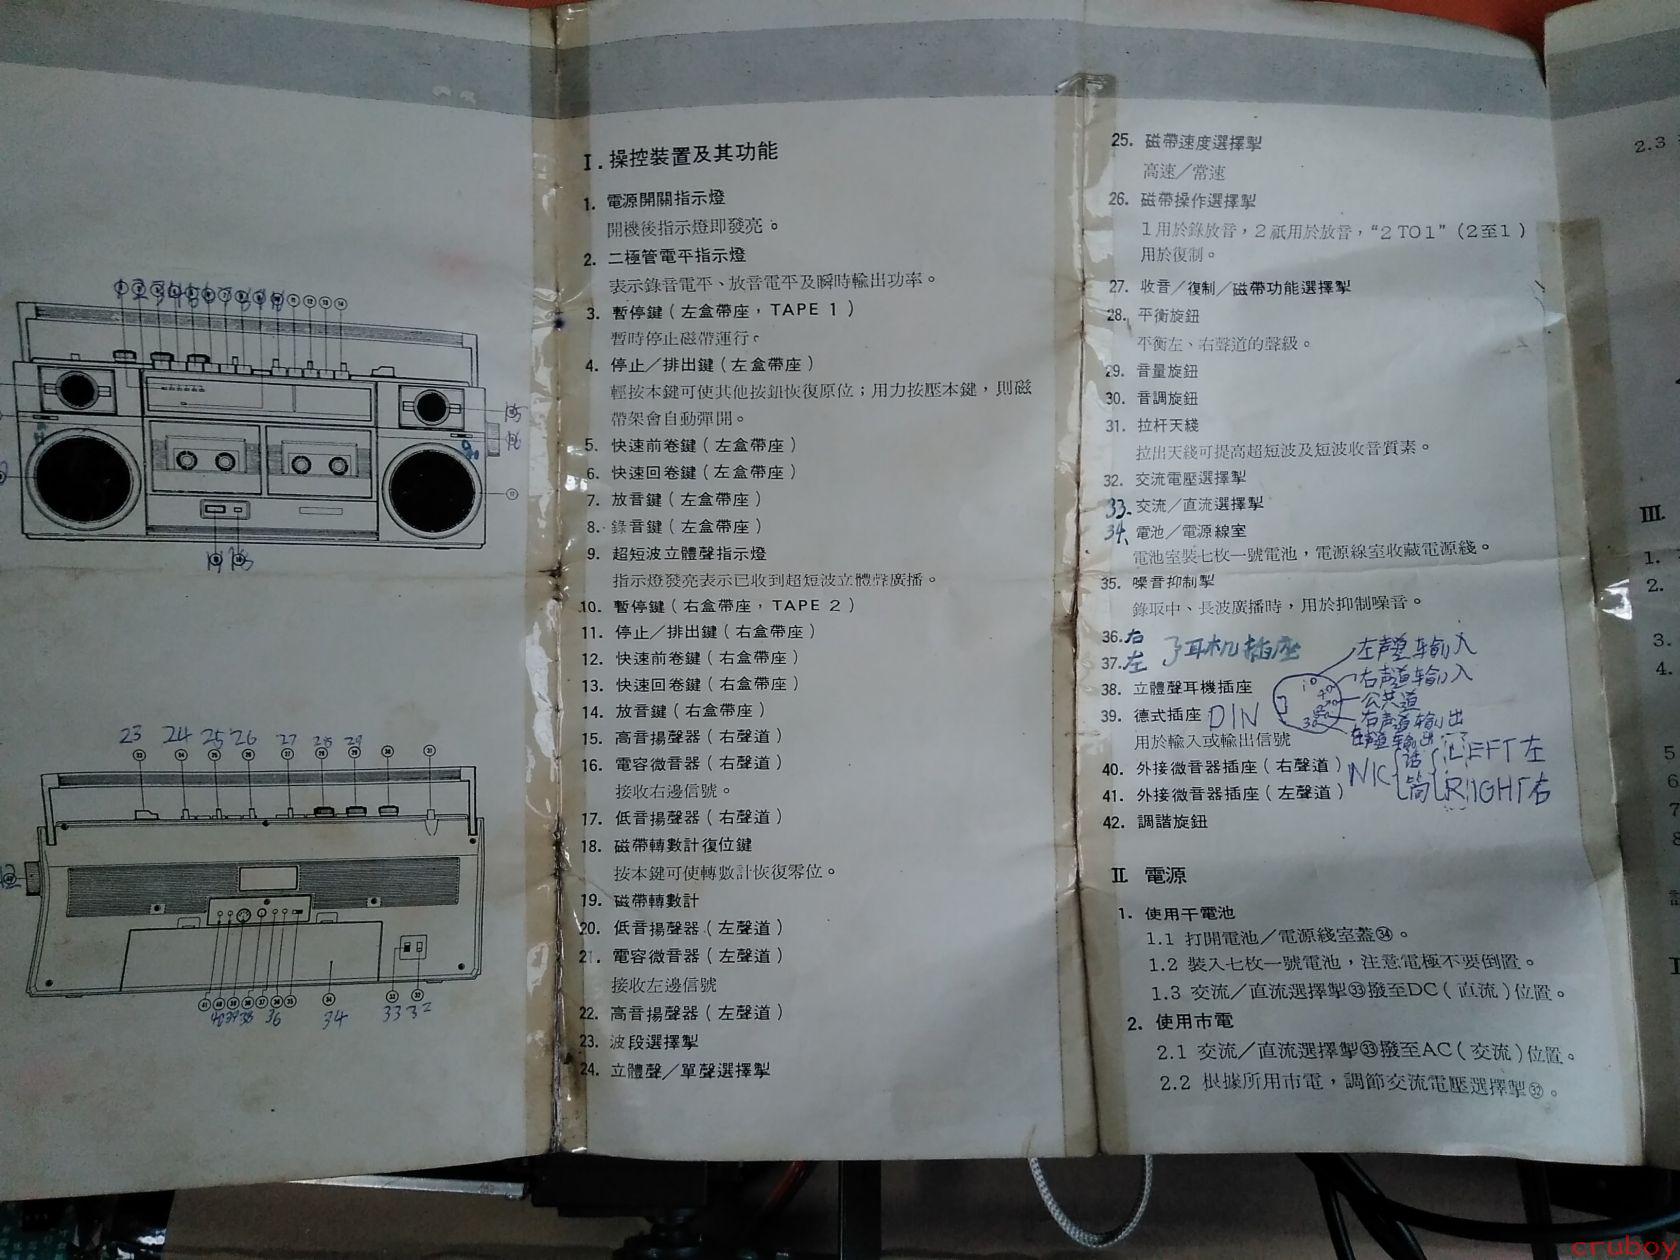 I. 操控裝置及其功能
1. 電源開關指示燈
開機後指示燈即發亮。
2. 二極管電平指示燈
表示錄音電平、放音電平及瞬時輸出功率。
3. 暫停鍵(左盒帶座，TAPE 1)
暫時停止磁帶運行。
4. 停止／排出鍵(左盒帶座)
輕按本鍵可使其他按鈕恢復原位；用力按壓本鍵，則磁
帶架會自動彈開。
5. 快速前卷鍵(左盒帶座)
6. 快速回卷鍵(左盒帶座)
7. 放音鍵(左盒帶座)
8. 錄音鍵(左盒帶座)
9. 超短波立體聲指示燈
指示燈發亮表示已收到超短波立體聲廣播。
10. 暫停鍵(右盒帶座，TAPE 2)
11. 停止／排出鍵(右盒帶座)
12. 快速前卷鍵(右盒帶座)
13. 快速回卷鍵(右盒帶座)
14. 放音鍵(右盒帶座)
15. 高音揚聲器(右聲道)
16. 電容微音器(右聲道)
接收右邊信號。
17. 低音揚聲器(右聲道)
18. 磁帶轉數計復位鍵
按本鍵可使轉數計恢復零位。
19. 磁帶轉數計
20. 低音揚聲器(左聲道)
21. 電容微音器(左聲道)
接收左邊信號
22. 高音揚聲器(左聲道)
23. 波段選擇掣
24. 立體聲／單聲選擇掣
25. 磁帶速度選擇掣
高速／常速
26. 磁帶操作選擇掣
1用於錄放音，2祇用於放音，“2 TO 1”(2至1)
用於復制。
27. 收音／復制／磁帶功能選擇掣
28. 平衡旋鈕
平衡左、右聲道的聲級。
29. 音量旋鈕
30. 音調旋鈕
31. 拉杆天綫
拉出天綫可提高超短波及短波收音質素。
32. 交流電壓選擇掣
33. 交流／直流選擇掣
34. 電池／電源線室
電池室裝七枚一號電池，電源線室收藏電源綫。
35. 噪音抑制掣
錄取中、長波廣播時，用於抑制噪音。
36. 右
37. 左
耳机插座
38. 立體聲耳機插座
39. 德式插座 DIN
用於輸入或輸出信號
左声道输入
右声道输入
公共道
右声道输出
左声道输出
40. 外接微音器插座(右聲道)
41. 外接微音器插座(左聲道)
MIC 话筒 LEFT 左
RIGHT 右
42. 調諧旋鈕
II 電源
1. 使用干電池
1.1 打開電池／電源綫室蓋㉞。
1.2 裝入七枚一號電池，注意電極不要倒置。
1.3 交流／直流選擇掣㉝撥至DC(直流)位置。
2. 使用市電
2.1 交流／直流選擇掣㉝撥至AC(交流)位置。
2.2 根據所用市電，調節交流電壓選擇掣㉜。
2.3
III.
1.
2.
3.
4.
5
6
7
8
23 24 25 26 27 28 29
34 33 32
cruboy